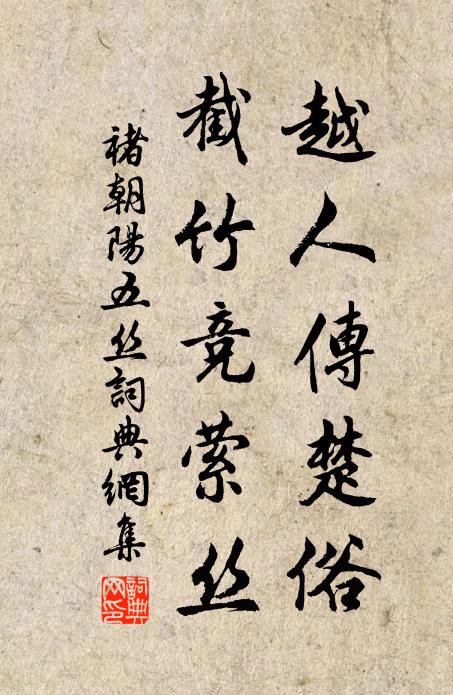 越人傳楚俗
截竹竞萦丝
褚朝陽五丝詞典網集
詞典网印